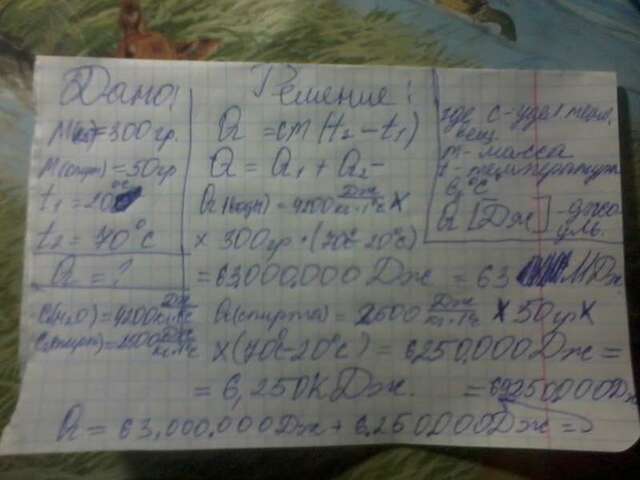 Дано:
m(в)=300гр.
m(спирт)=50гр
t₁=20°C
t₂=70°C
Q=?
C(H₂O)=4200 Дж/кг·1°C
C(спирт)=2500 Дж/кг·1°C
Решение:
Q=cm(t₂-t₁)
Q=Q₁+Q₂-
Q(воды)=4200 Дж/кг·1°C ×
× 300гр·(70°C-20°C)
=63,000,000 Дж = 63 МДж
Q(спирта)=2500 Дж/кг·1°C × 50гр ×
×(70°C-20°C)=6250,000Дж=
=6,250КДж. =69250,000Дж
Q=63,000,000Дж+6,250,000Дж=>
где с-удел тепл.
вещ
m-масса
t-температура
в °C
Q [Дж]-джо
уль.